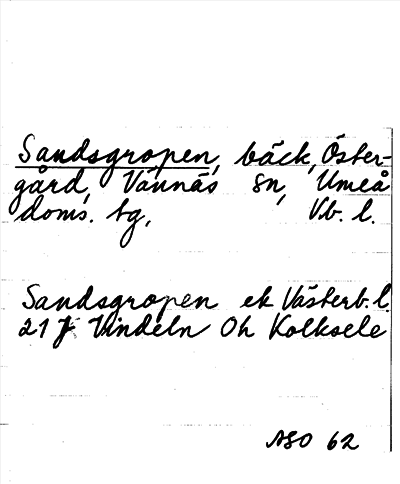 Sandsgropen, bäck, Öster-
gård, Vännäs sn, Umeå
doms. tg, Vb. l.
Sandsgropen ek Västerb. l.
21 J Vindeln Oh Kolksele
ASO 62